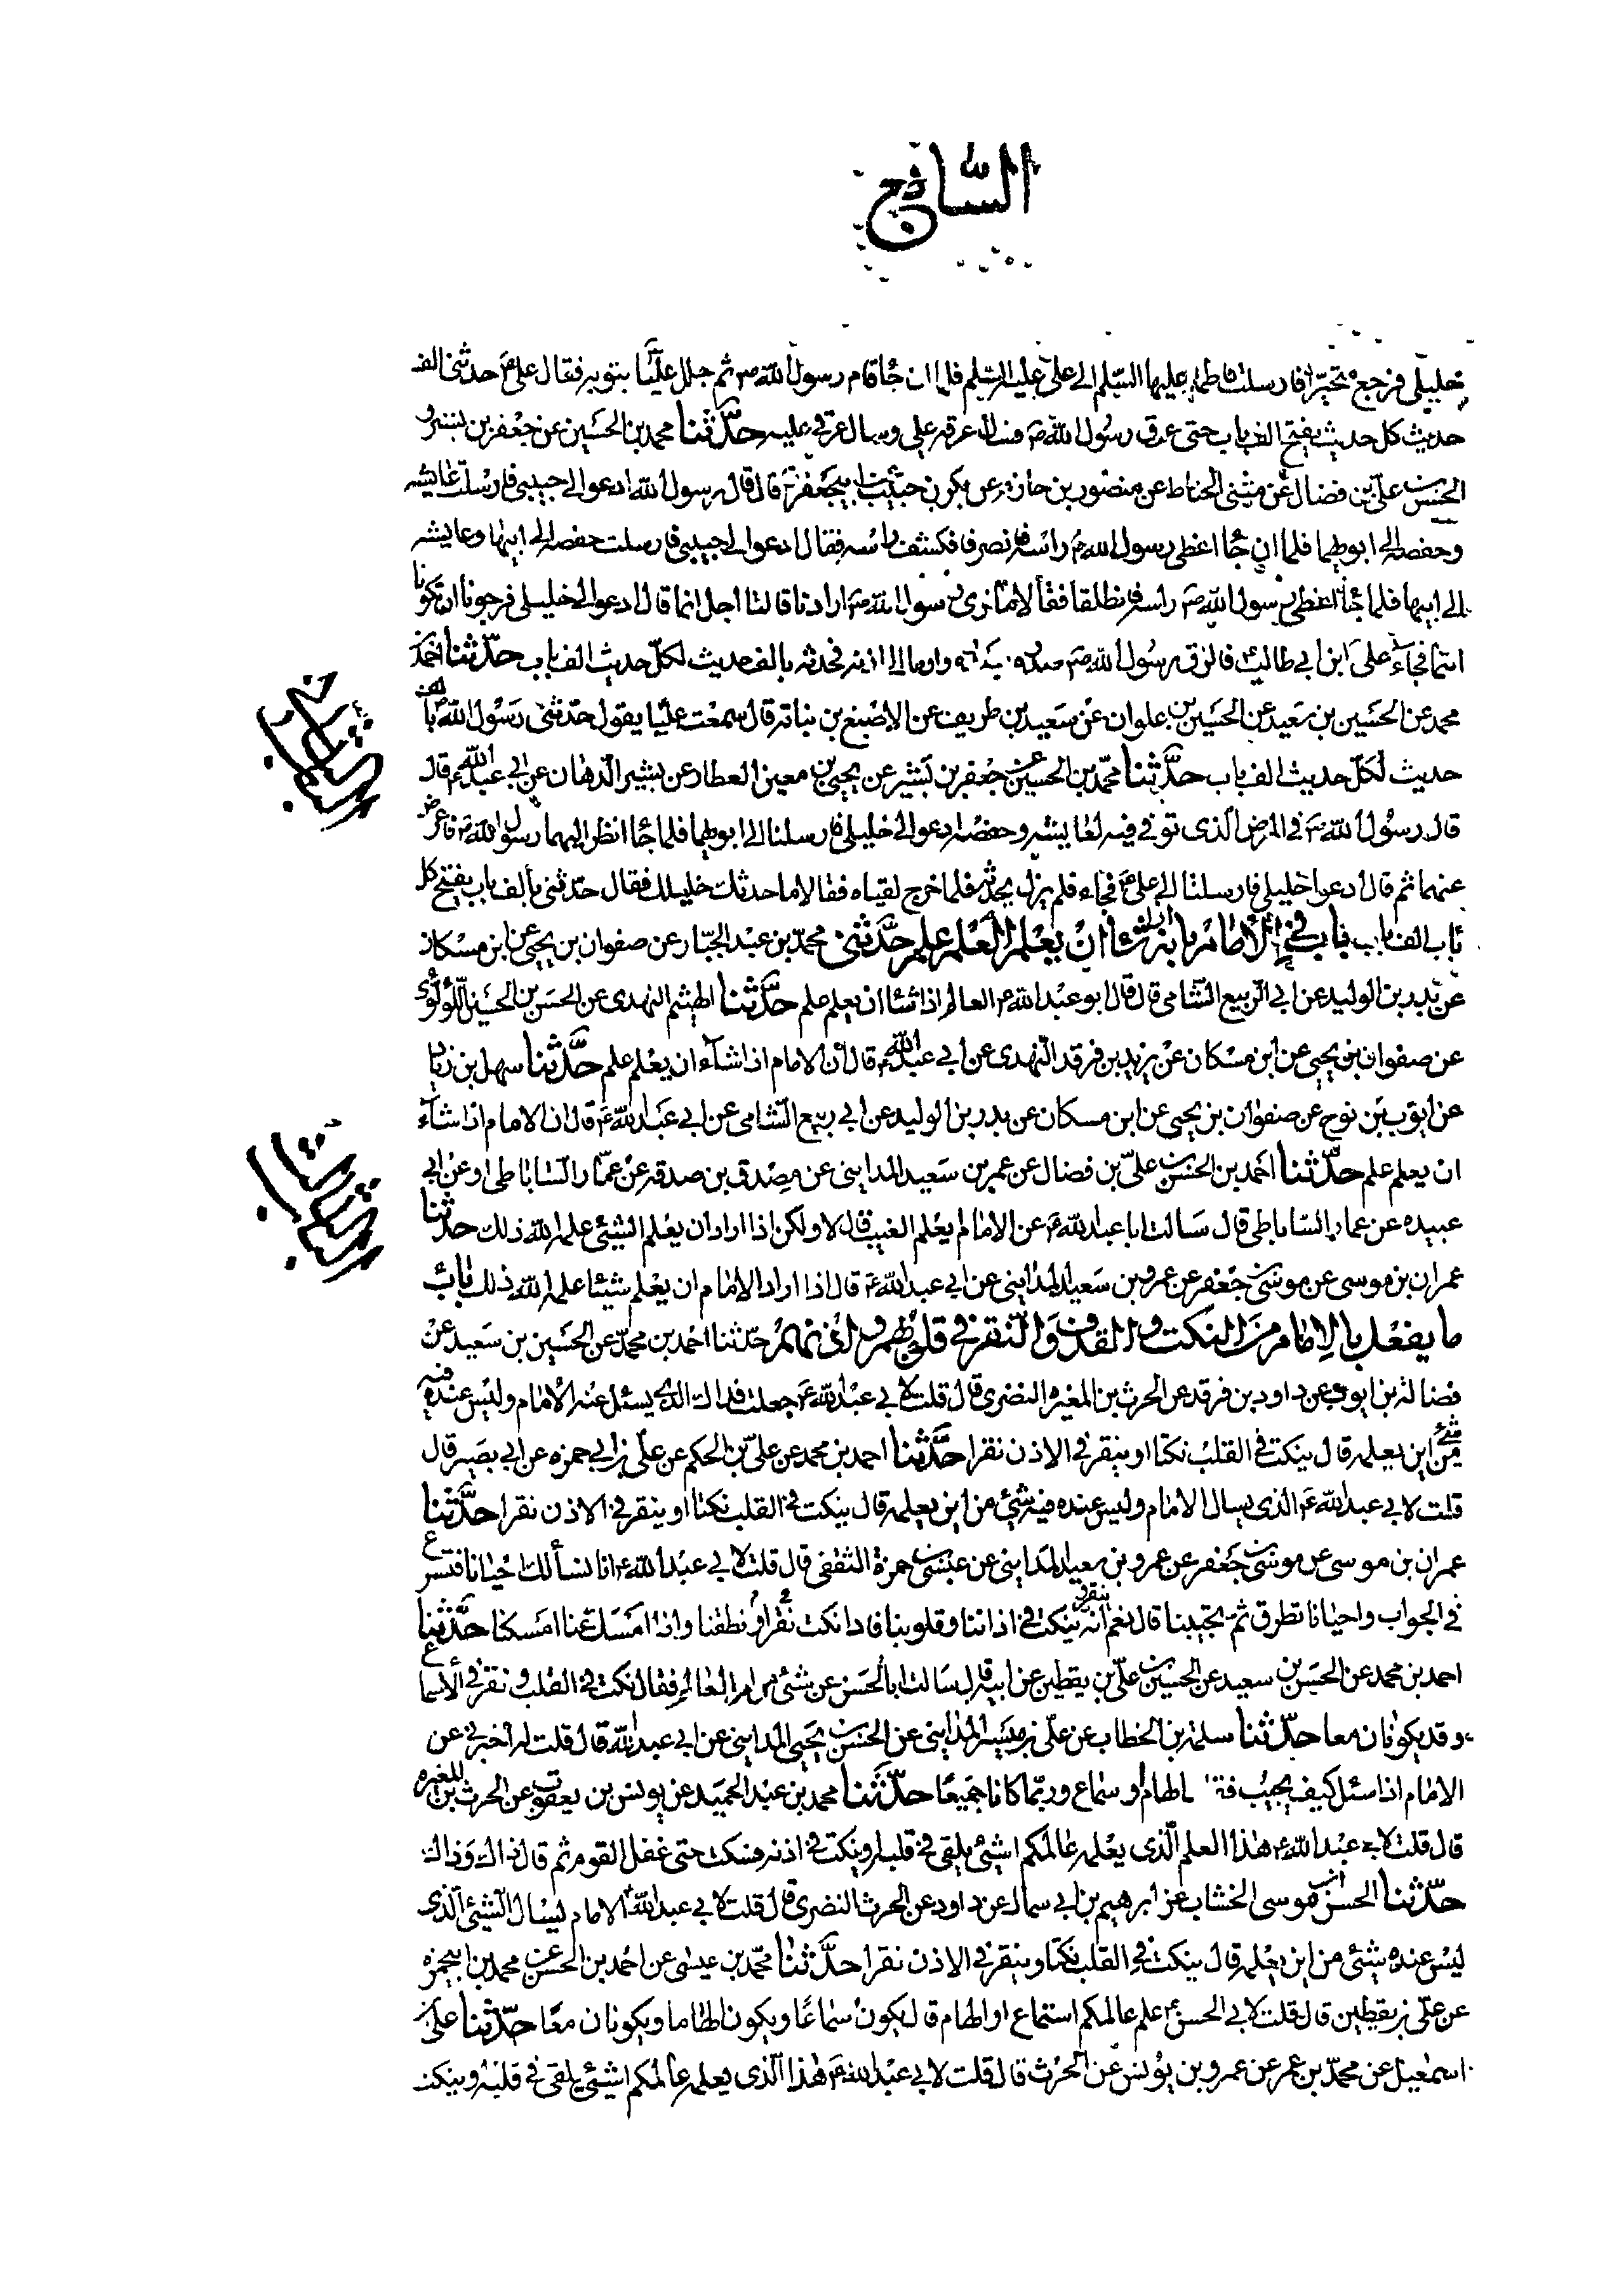 السابع
خليلي فرجع متحيرا فارسلت فاطمة عليها السلم الى على عليه السلم فلما ان جاء قام رسول الله ص ثم جلل عليا بثوبه فقال على ع حدثنى الف
حديث كل حديث يفتح الف باب حتى عرق رسول الله ص فسال عرقه على وسال عرقى عليه حدثنا محمد بن الحسين عن جعفر بن بشير و
الحسن بن على بن فضال عن مثنى الحناط عن منصور بن حازم عن بكر بن حبيب عن ابيجعفر ع قال قال رسول الله ادعوا لى حبيبى فارسلت عايشه
وحفصه الى ابويهما فلما ان جاا غطى رسول الله ص راسه فانصرفا فكشف راسه فقال ادعوا لى حبيبى فارسلت حفصه الى ابيها وعايشه
الى ابيها فلما جاا غطى رسول الله ص راسه فانطلقا فقالا ما نرى رسول الله ص ارادنا قالتا اجل انما قال ادعوا لى خليلى فرجونا ان تكونا
انتما فجاء على ابن ابي طالب ع فالزق رسول الله ص واوما الى اذنه فحدثه بالف حديث لكل حديث الف باب حدثنا احمد بن
محمد عن الحسين بن سعيد عن الحسين بن علوان عن سعيد بن طريف عن الاصبغ بن نباته قال سمعت عليا يقول حدثنى رسول الله ص بالف
حديث لكل حديث الف باب حدثنا محمد بن الحسين عن جعفر بن بشير عن يحيى بن معين العطار عن بشير الدهان عن ابى عبد الله ع قال
قال رسول الله ص فى المرض الذى توفى فيه لعايشه وحفصه ادعوا لى خليلى فارسلنا الى ابويهما فلما جاا نظر اليهما رسول الله ص فاعرض
عنهما ثم قال ادعوا خليلى فارسلنا الى على ع فجاء فلم يزل يحدثه فلما خرج لقياه فقالا ما حدثك خليلك فقال حدثنى بالف باب يفتح كل
باب الف باب باب فى الامام بانه ان شاء ان يعلم العلم علم حدثنى محمد بن عبد الجبار عن صفوان بن يحيى عن ابن مسكان
عن بدر بن الوليد عن ابى الربيع الشامى قال قال ابو عبد الله ع العالم اذا شاا ان يعلم علم حدثنا الهيثم النهدى عن الحسن بن الحسين اللؤلؤى
عن صفوان بن يحيى عن ابن مسكان عن يزيد بن فرقد النهدى عن ابى عبد الله ع قال ان الامام اذا شاء ان يعلم علم حدثنا سهل بن زياد
عن ايوب بن نوح عن صفوان بن يحيى عن ابن مسكان عن بدر بن الوليد عن ابى ربيع الشامى عن ابى عبد الله ع قال ان الامام اذا شاء
ان يعلم علم حدثنا احمد بن الحسن بن على بن فضال عن عمر بن سعيد المداينى عن مصدق بن صدقه عن عمار الساباطى او عن ابى
عبيده عن عمار الساباطى قال سالت ابا عبد الله ع عن الامام يعلم الغيب قال لا ولكن اذا اراد ان يعلم الشيئ علمه الله ذلك حدثنا
عمران بن موسى عن موسى بن جعفر عن عمرو بن سعيد المداينى عن ابى عبد الله ع قال اذا اراد الامام ان يعلم شيئا علمه الله ذلك باب
ما يفعل بالامام من النكت والقذف والنقر فى قلوبهم واذانهم حدثنا احمد بن محمد عن الحسين بن سعيد عن
فضالة بن ايوب عن داود بن فرقد عن الحرث بن المغيره النضرى قال قلت لابى عبد الله ع جعلت فداك الذى يسئل عنه الامام وليس عنده فيه
شئ من اين يعلمه قال ينكت فى القلب نكتا او ينقر فى الاذن نقرا حدثنا احمد بن محمد عن على بن الحكم عن على بن ابى حمزه عن ابى بصير قال
قلت لابى عبد الله ع الذى يسال الامام وليس عنده فيه شيئ من اين يعلمه قال ينكت فى القلب نكتا او ينقر فى الاذن نقرا حدثنا
عمران بن موسى عن موسى بن جعفر عن عمرو بن سعيد المداينى عن عيسى بن حمزة الثقفى قال قلت لابى عبد الله ع انا نسألك احيانا فتسرع
فى الجواب واحيانا تطرق ثم تجيبنا قال نعم انه ينقر و ينكت فى اذاننا وقلوبنا فاذا نكت او نقر نطقنا واذا امسك عنا امسكنا حدثنا
احمد بن محمد عن الحسن بن سعيد عن الحسين بن على بن يقطين عن ابيه قال سالت ابا الحسن ع عن شيئ من امر العالم فقال نكت فى القلب ونقر فى الأسماع
وقد يكونان معا حدثنا سلمة بن الخطاب عن على بن ميسر المداينى عن الحسن بن يحيى المداينى عن ابى عبد الله قال قلت له اخبرنى عن
الامام اذا سئل كيف يجيب الهام او سماع وربما كانا جميعا حدثنا محمد بن عبد الحميد عن يونس بن يعقوب عن الحرث بن المغيره
قال قلت لابى عبد الله ع هذا العلم الذى يعلمه عالمكم اشيئ يلقى فى قلبه او ينكت فى اذنه فسكت حتى غفل القوم ثم قال ذاك وذاك
حدثنا الحسن بن موسى الخشاب عن ابرهيم بن ابى سمال عن داود عن الحرث النضرى قال قلت لابى عبد الله ع الامام يسال الشيئ الذى
ليس عنده شيئ من اين يعلمه قال ينكت فى القلب نكتا وينقر فى الاذن نقرا حدثنا محمد بن عيسى عن احمد بن الحسن عن محمد بن ابيحمزه
عن على بن يقطين قال قلت لابى الحسن ع علم عالمكم استماع او الهام قال يكون سماعا ويكون الهاما ويكونان معا حدثنا على بن
اسمعيل عن محمد بن عمر عن عمرو بن يونس عن الحرث قال قلت لابى عبد الله ع هذا الذى يعلمه عالمكم اشيئ يلقى فى قلبه وينكت